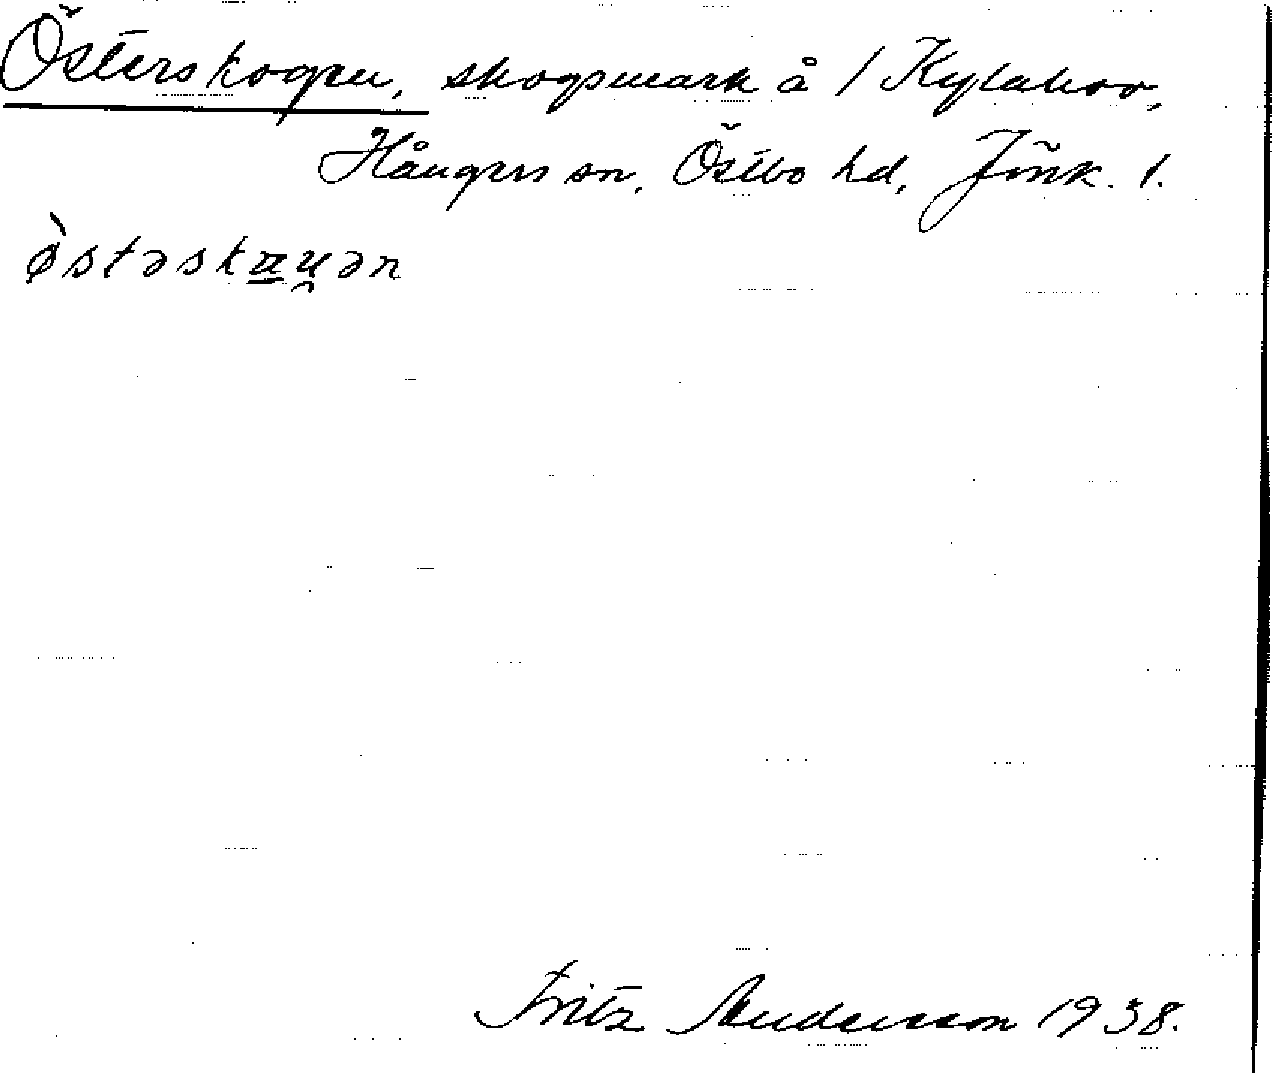 Österskogen, skogsmark å 1 Kylahov,
Hångers sn, Östbo hd, Jönk. l.
Fritz Andersson 1938.